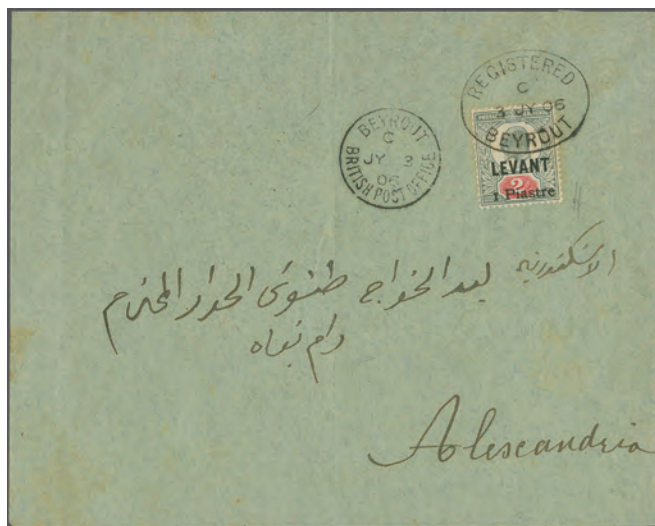 REGISTERED
C
3 JY 06
BEYROUT
BEYROUT
C
JY 3
06
BRITISH POST OFFICE
LEVANT
2
1 Piastre
الاسكندرية ليد الخواجه طنوس الحداد المحترم
دام بقاه
Alexcandria